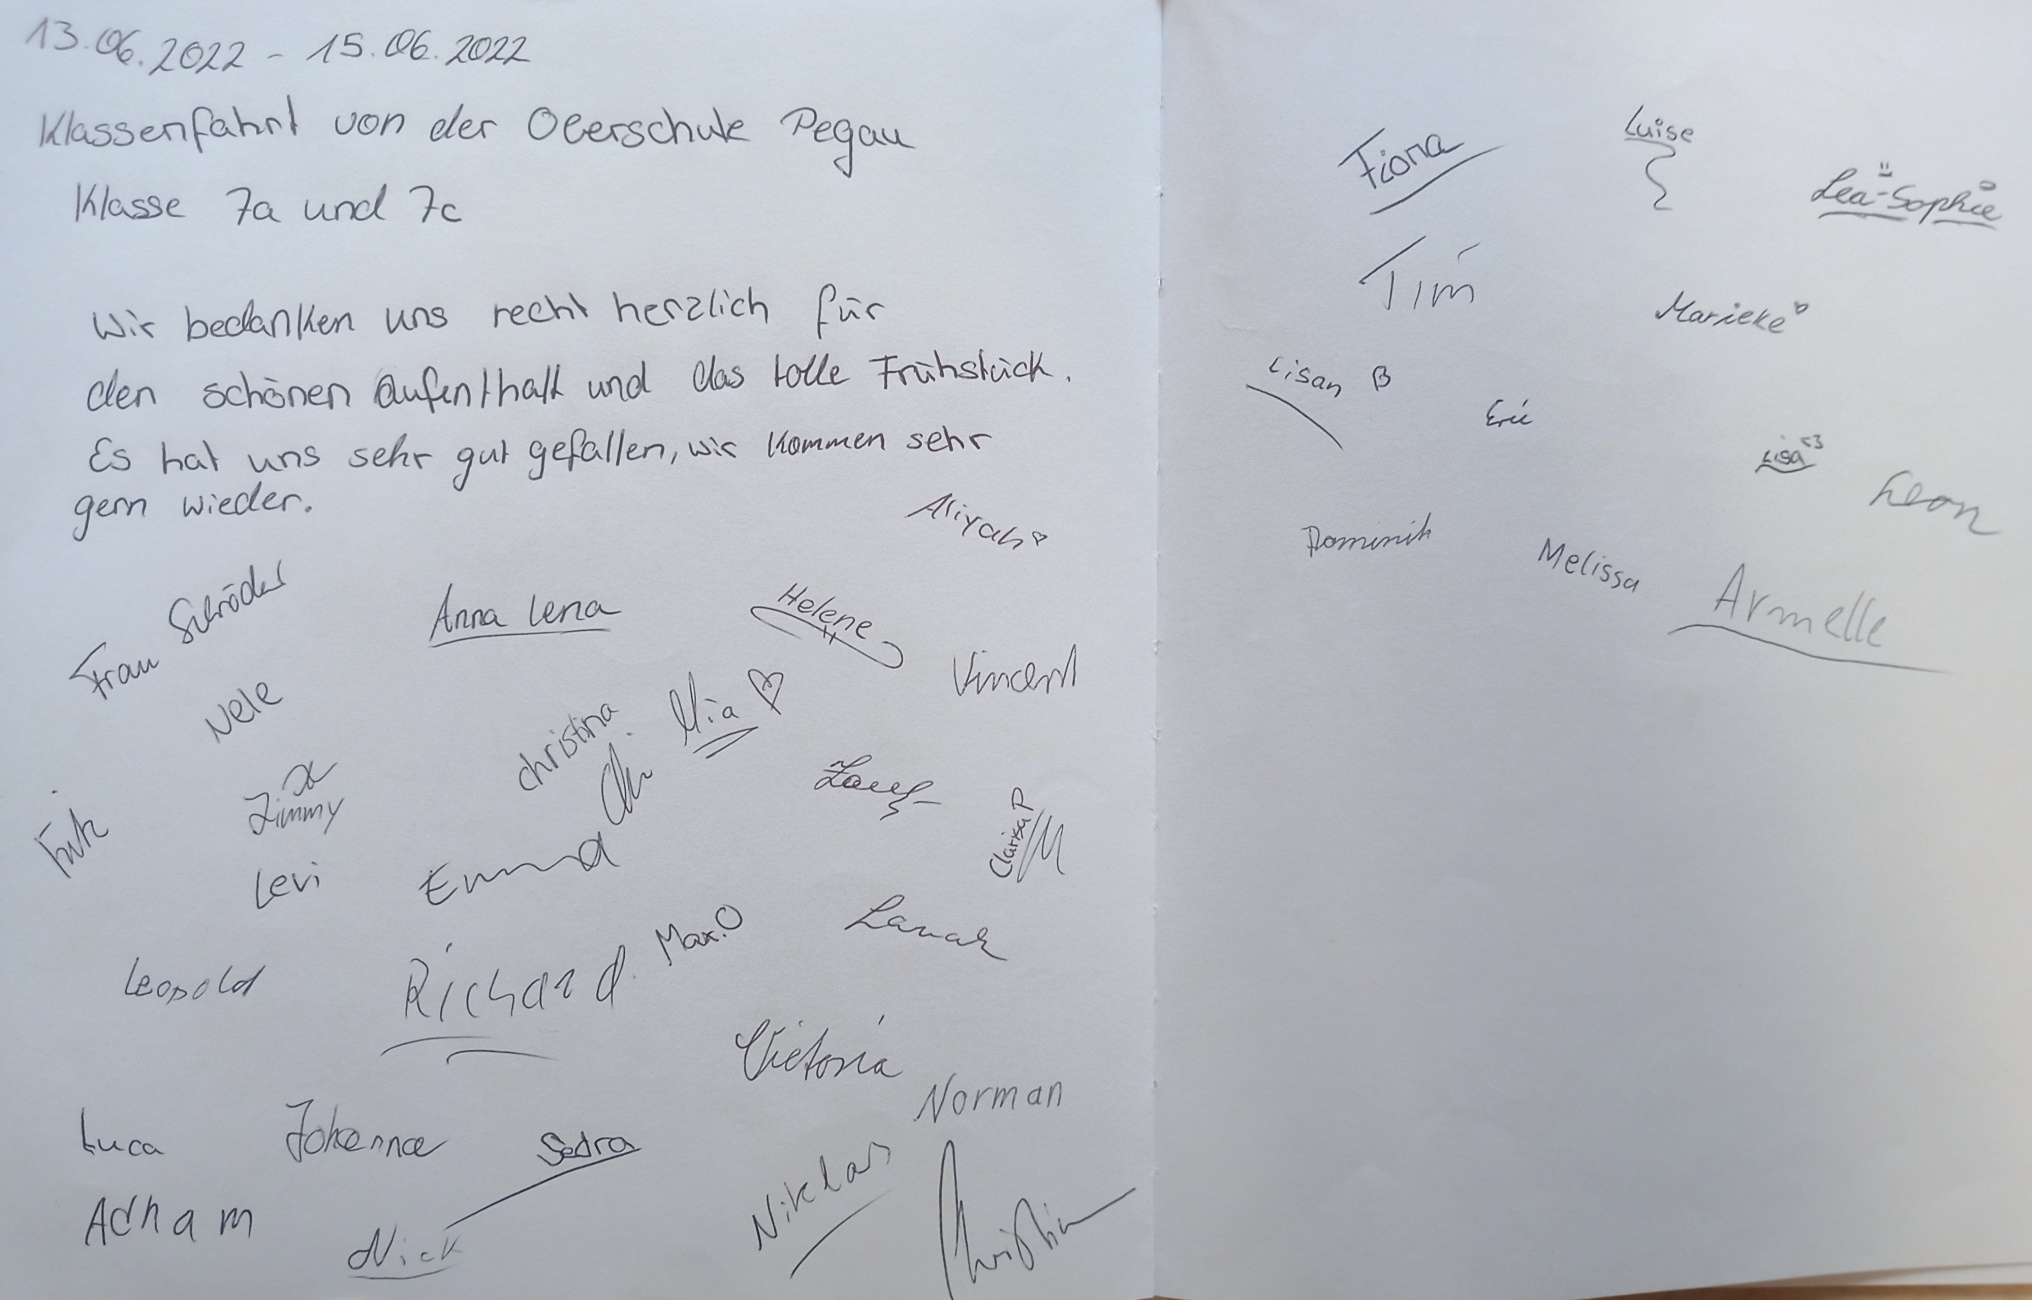 13.06.2022 - 15.06.2022
Klassenfahrt von der Oberschule Pegau
Klasse 7a und 7c
Wir bedanken uns recht herzlich für
den schönen Aufenthalt und das tolle Frühstück.
Es hat uns sehr gut gefallen, wir kommen sehr
gern wieder.
Aliyah
Frau Schröder
Anna Lena
Helene
Vincent
Nele
Christina
Mia ♡
Jimmy
Clarisa P
Levi
Emma
Leopold
Richard
Max.O
Victoria
Norman
Luca
Johanna
Sedra
Niklas
Adham
Nick
Christian
Fiona
Luise
Lea-Sophie
Tim
Marieke
Lisan B
Eric
Lisa <3
Leon
Dominik
Melissa
Armelle